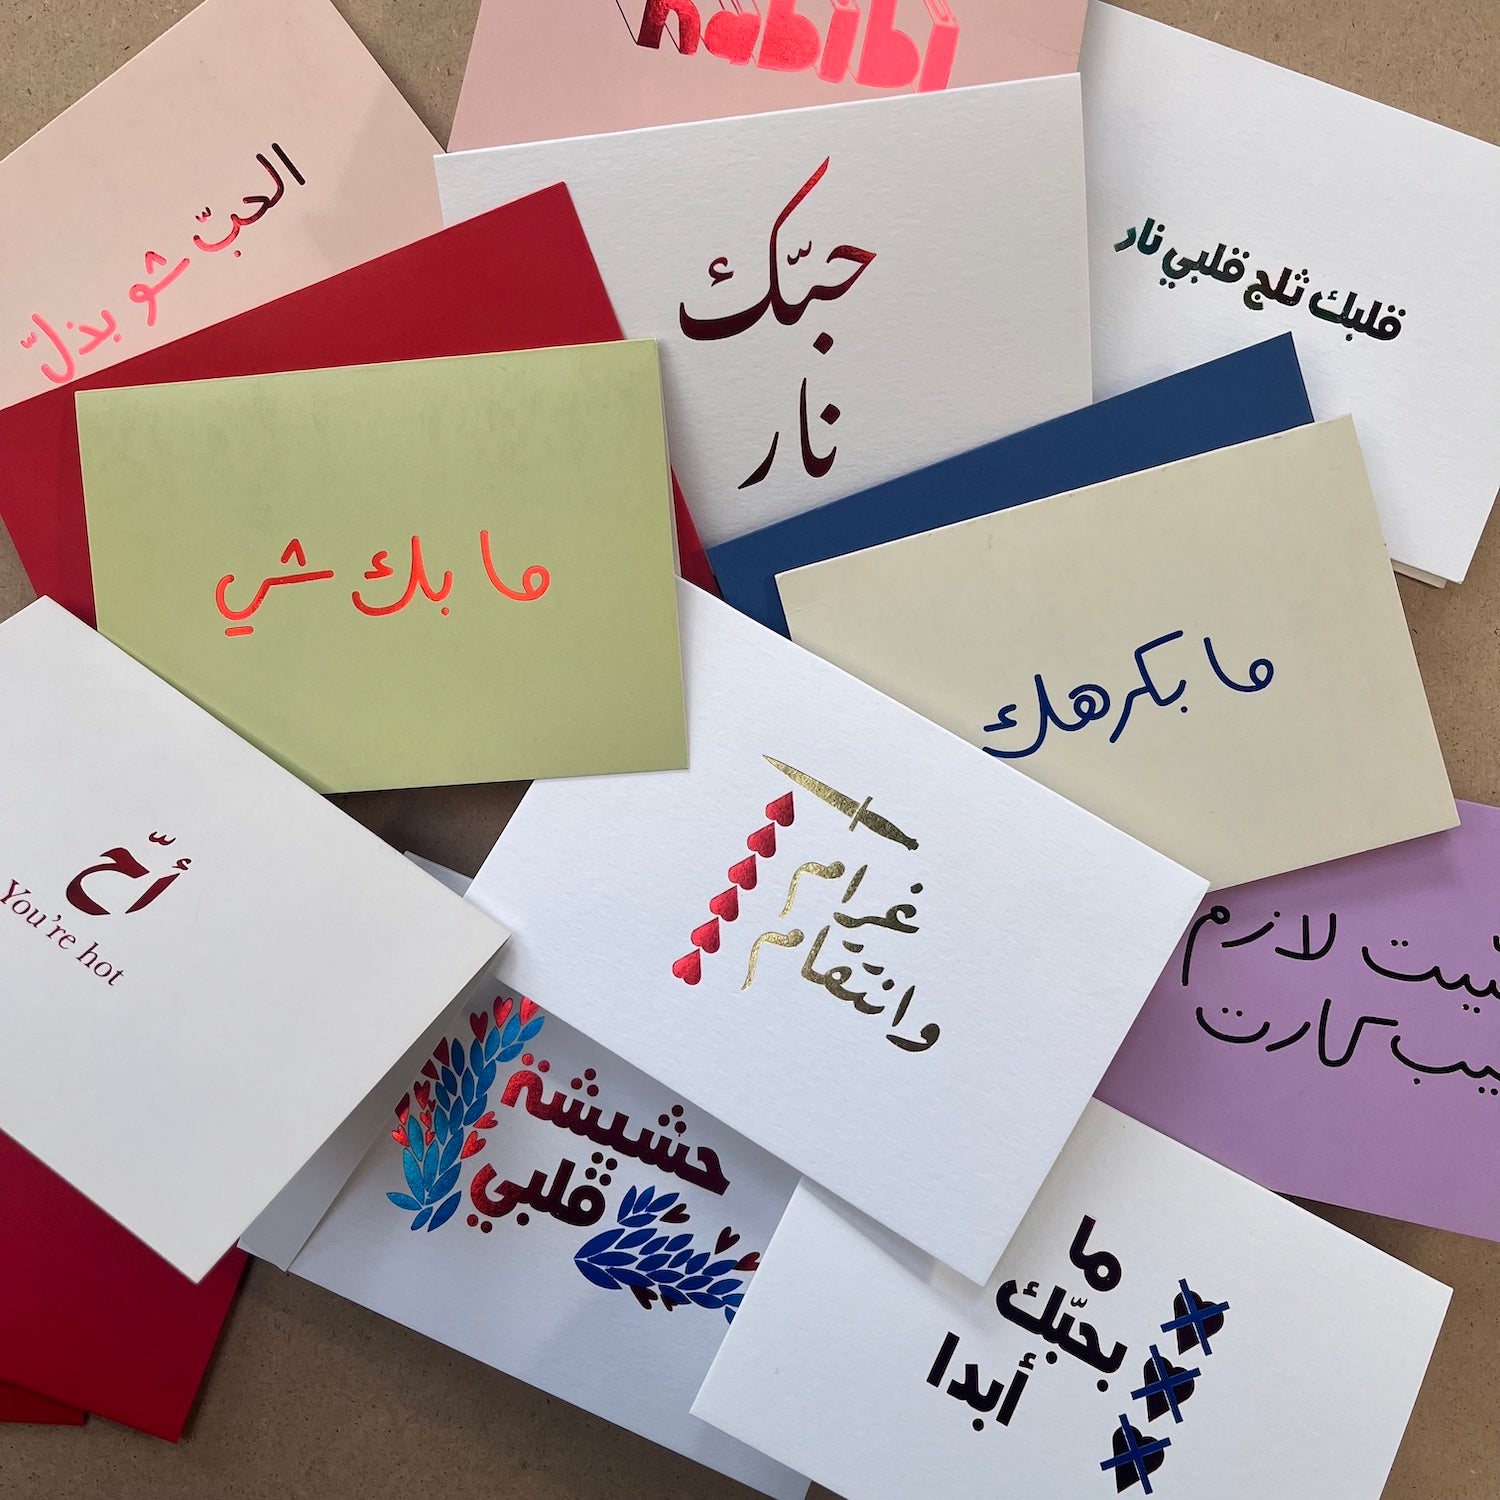 habibi
الحبّ شو بذلّ
حبّك
نار
قلبك ثلج قلبي نار
ما بك شي
ما بكرهك
أحّ
You're hot
غرام
وانتقام
لازم
كارت
حشيشة
قلبي
ما
بحبّك
أبدا